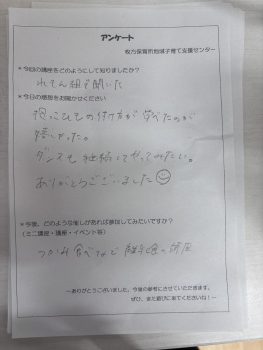 アンケート
牧方保育所地域子育て支援センター
*今回の講座をどのようにして知りましたか?
*今日の感想をお聞かせください
抱っこひもの付け方が学べたのが
嬉しかった。
ダンスも継続してやってみたい。
ありがとうございました
*今後、どのような催しがあれば参加してみたいですか?
(ミニ講座・講座・イベント等)
つかみ食べなど離乳食の講座
ーありがとうございました。今後の参考にさせていただきます。
ぜひ、また遊びに来てくださいね!ー